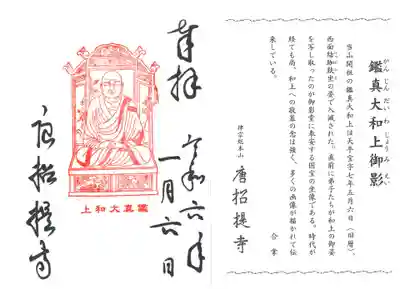 鑑真大和上御影
がんじんだいわじょうみえい
当山開祖の鑑真大和上は天平宝字七年五月六日（旧暦）、
西面結跏趺坐の姿で入滅された。直前に弟子たちが和上の御姿
を写し取ったのが御影堂に奉安する国宝の坐像である。時代が
経ても尚、和上への敬慕の念は強く、多くの画像が描かれて伝
来している。
合掌
律宗総本山 唐招提寺
奉拝
令和六年
一月六日
鑑真大和上
唐招提寺